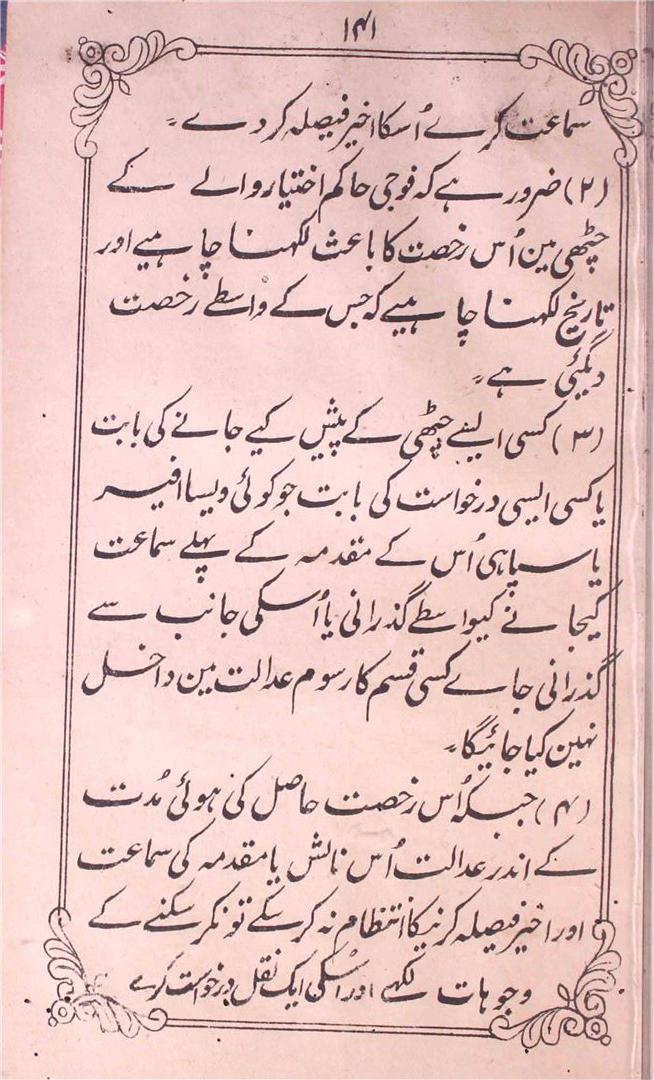 ۱۴۱
سماعت کرے اُسکا اخیر فیصلہ کر دے۔
(۲) ضرور ہے کہ فوجی حاکم اختیار والے کے
چٹھی مین اُس رخصت کا باعث لکھنا چاہیے اور
تاریخ لکھنا چاہیے کہ جس کے واسطے رخصت
دیگئی ہے۔
(۳) کسی ایسے چٹھی کے پیش کیے جانے کی بابت
یا کسی ایسی درخواست کی بابت جو کوئی ویسا افیسر
یا سپاہی اُس کے مقدمہ کے پہلے سماعت
کیجانے کیواسطے گذرانی یا اُسکی جانب سے
گذرانی جاے کسی قسم کا رسوم عدالت مین داخل
نہین کیا جائیگا۔
(۴) جبکہ اُس رخصت حاصل کی ہوئی مُدت
کے اندر عدالت اُس نالش یا مقدمہ کی سماعت
اور اخیر فیصلہ کرنیکا انتظام نہ کر سکے تو نکر سکنے کے
وجوہات لکھے اور اُسکی ایک نقل درخواست کرے